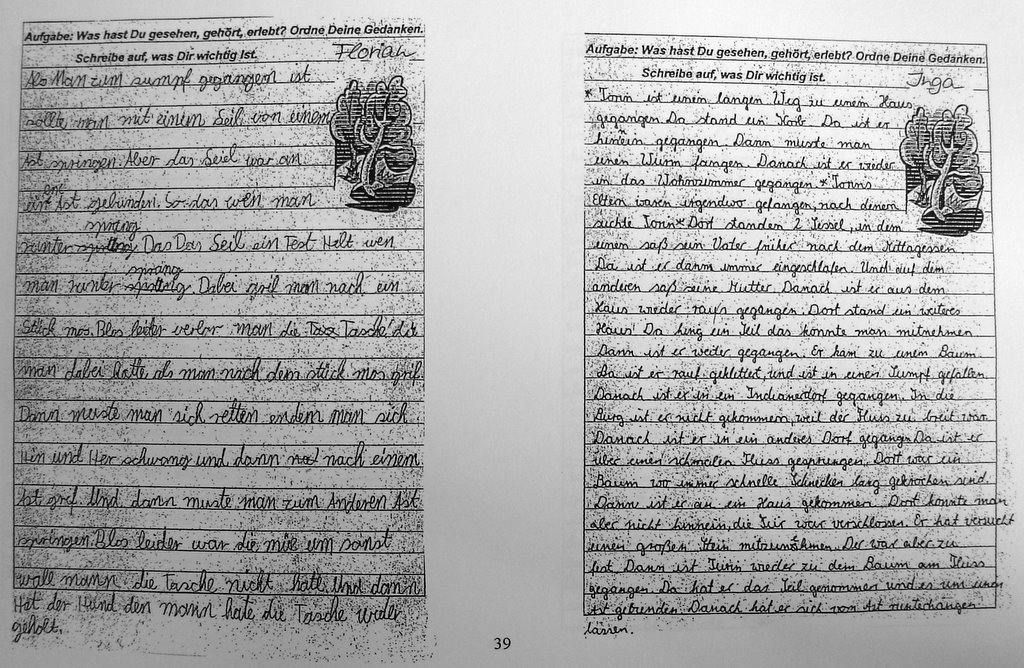 Aufgabe: Was hast Du gesehen, gehört, erlebt? Ordne Deine Gedanken.
Schreibe auf, was Dir wichtig ist.
Florian
Als Man zum sumpf gegangen ist
sollte man mit einten Seil von einem
Ast springen. Aber das Seiel war an
ein Ast gebunden. So das wen man
sprang
runter Das Das Seil ein Fest Helt wen
sprang
man runter Dabei grif man nach ein
Stück mos. Blos leider verlor man die Tasche die
man dabei hatte als man nach dem stück mos grif.
Dann muste man sich retten endem man sich
Hin und Her schwang und dann nach einem
Ast grif Und dann muste man zum Anderen Ast
springen. Blos leider war die müe um sonst
walle mann die Tasche nicht hate. Und dann
Hat der Hund den mann hate die Tasche wider
geholt.
Aufgabe: Was hast Du gesehen, gehört, erlebt? Ordne Deine Gedanken.
Schreibe auf, was Dir wichtig ist.
Inga
* Tonin ist einen langen Weg zu einem Haus
gegangen. Da stand ein Korb. Da ist er
hinein gegangen. Dann musste man
einen Wurm fangen. Danach ist er wieder
in das Wohnzimmer gegangen.* Tonins
Eltern waren irgendwo gefangen, nach denen
suchte Tonin* Dort standen 2 Sessel, in dem
einen saß sein Vater früher nach dem Mittagessen.
Da ist er dann immer eingeschlafen. Und auf dem
anderen saß seine Mutter. Danach ist er aus dem
Haus wieder raus gegangen. Dort stand ein weiteres
Haus! Da hing ein Seil das konnte man mitnehmen
Dann ist er weiter gegangen. Er kam zu einen Baum.
Da ist er rauf geklettert, und ist in einen Sumpf gefallen.
Danach ist er in ein Indianerdorf gegangen. In die
Burg ist er nicht gekommen, weil der Fluss zu breit war.
Danach ist er in ein anderes Dorf gegangn. Da ist er
über einen schmalen Fluss gesprungen. Dort war ein
Baum wo immer schnelle Schnecken lang gekrochen sind.
Dann ist er an ein Haus gekommen. Dort konnte man
aber nicht hinnein, die Tür war verschlossen. Er hat versucht
einen großen Stein mitzunehmen. Der war aber zu
fest. Dann ist Tonin wieder zu dem Baum am Fluss
gegangen. Da hat er das Seil genommen und es um einen
Ast gebunden. Danach hat er sich vom Ast runterhangen
lassen.
39